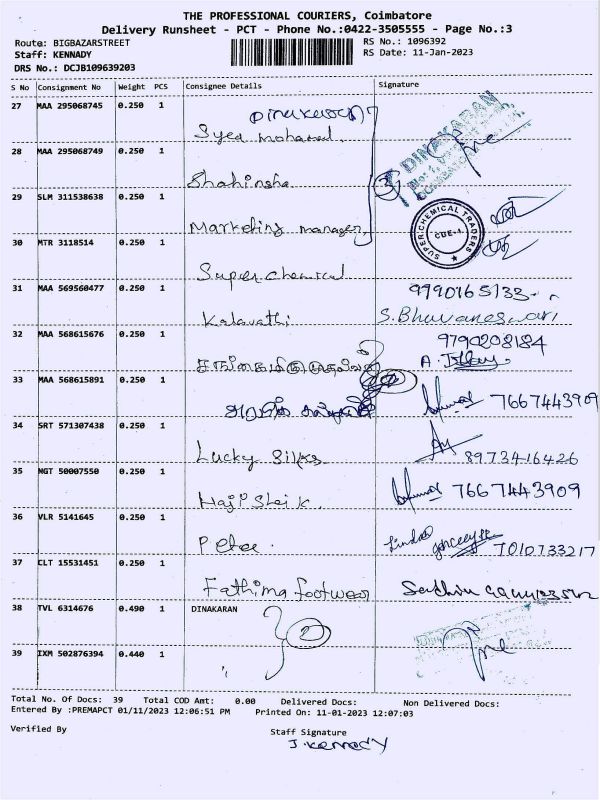 THE PROFESSIONAL COURIERS, Coimbatore
Delivery Runsheet - PCT - Phone No.:0422-3505555 - Page No.:3
Route: BIGBAZARSTREET
RS No.: 1096392
Staff: KENNADY
RS Date: 11-Jan-2023
DRS No.: DCJB109639203
S No Consignment No Weight PCS Consignee Details Signature
27 MAA 295068745 0.250 1 Dinakaran
Syed mohamed. DINAKARAN
28 MAA 295068749 0.250 1
Shahinsha
29 SLM 311538638 0.250 1
Marketing manager SUPER CHEMICAL TRADERS CBE-1.
30 MTR 3118514 0.250 1
Super chemical
31 MAA 569560477 0.250 1 9790765133
Kalavathi S. Bhuvaneswari
32 MAA 568615676 0.250 1 9790208184
33 MAA 568615891 0.250 1
7667443909
34 SRT 571307438 0.250 1
Lucky Silks 8973416426
35 NGT 50007550 0.250 1 7667443909
Haji Sheik
36 VLR 5141645 0.250 1
Peter. 7010733217
37 CLT 15531451 0.250 1
Fathima footwear
38 TVL 6314676 0.490 1 DINAKARAN
2
39 IXM 502876394 0.440 1
Total No. Of Docs: 39 Total COD Amt: 0.00 Delivered Docs: Non Delivered Docs:
Entered By :PREMAPCT 01/11/2023 12:06:51 PM Printed On: 11-01-2023 12:07:03
Verified By Staff Signature
J. Kennady